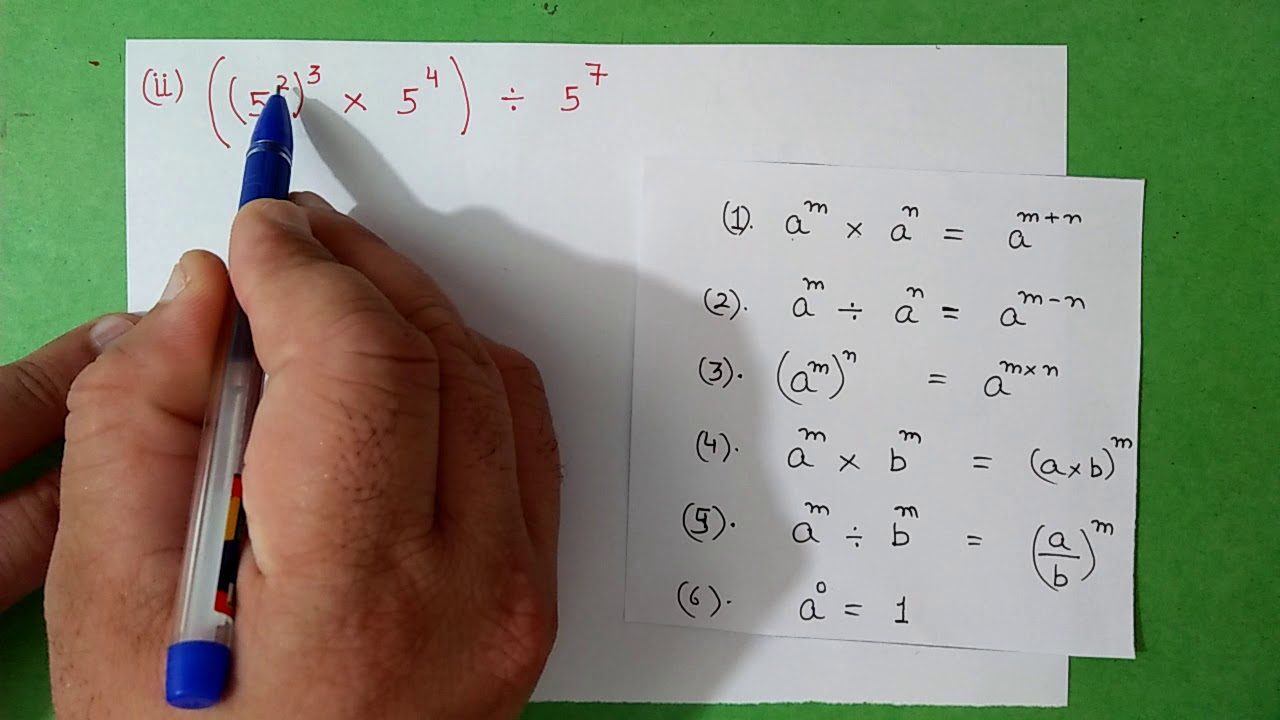 (ii) ((5²)³ × 5⁴) ÷ 5⁷
(1). aᵐ × aⁿ = aᵐ⁺ⁿ
(2). aᵐ ÷ aⁿ = aᵐ⁻ⁿ
(3). (aᵐ)ⁿ = aᵐˣⁿ
(4). aᵐ × bᵐ = (a×b)ᵐ
(5). aᵐ ÷ bᵐ = (a/b)ᵐ
(6). a⁰ = 1